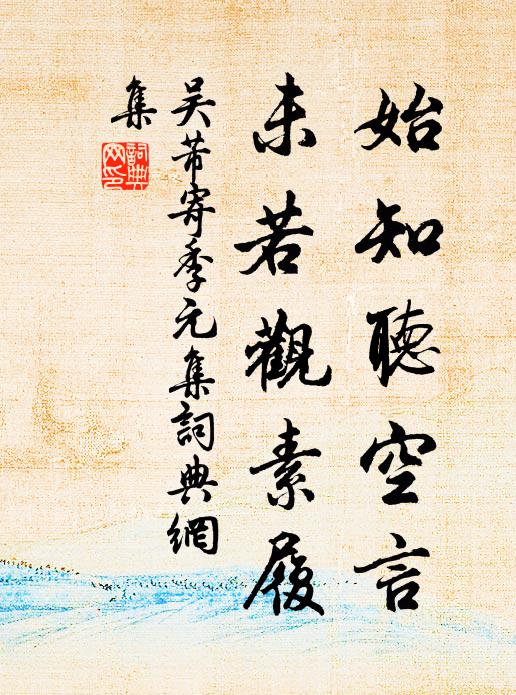 始知聽空言
未若觀素履
吳芾寄季元集詞典網
集
詞典
網印